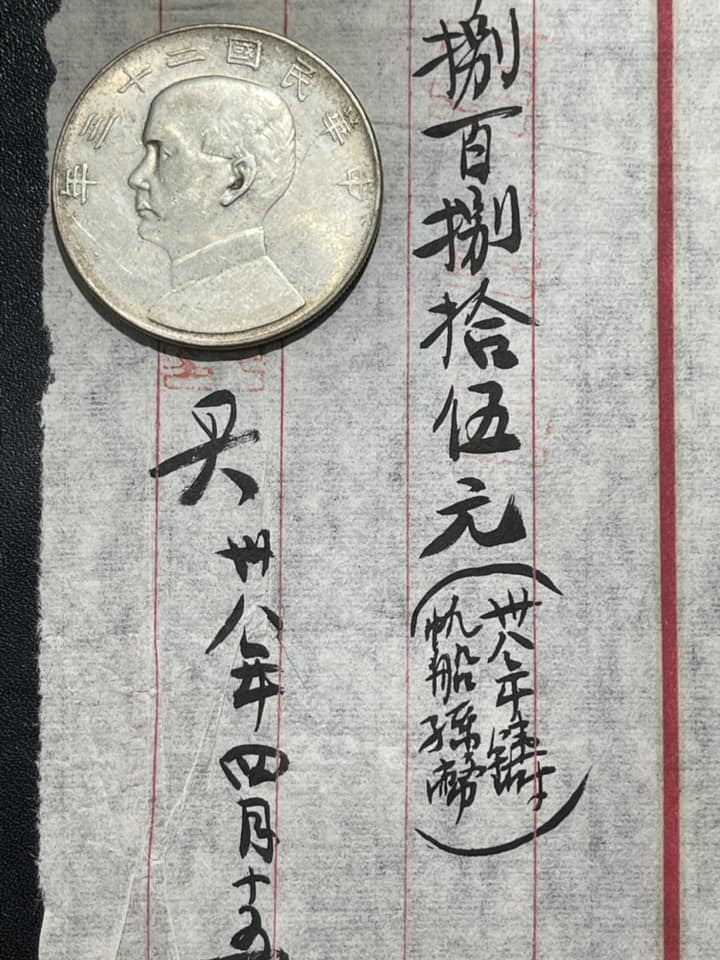 捌百捌拾伍元
(卅八年鑄
帆船孫幣)
卅八年四月十五
中華民國二十三年